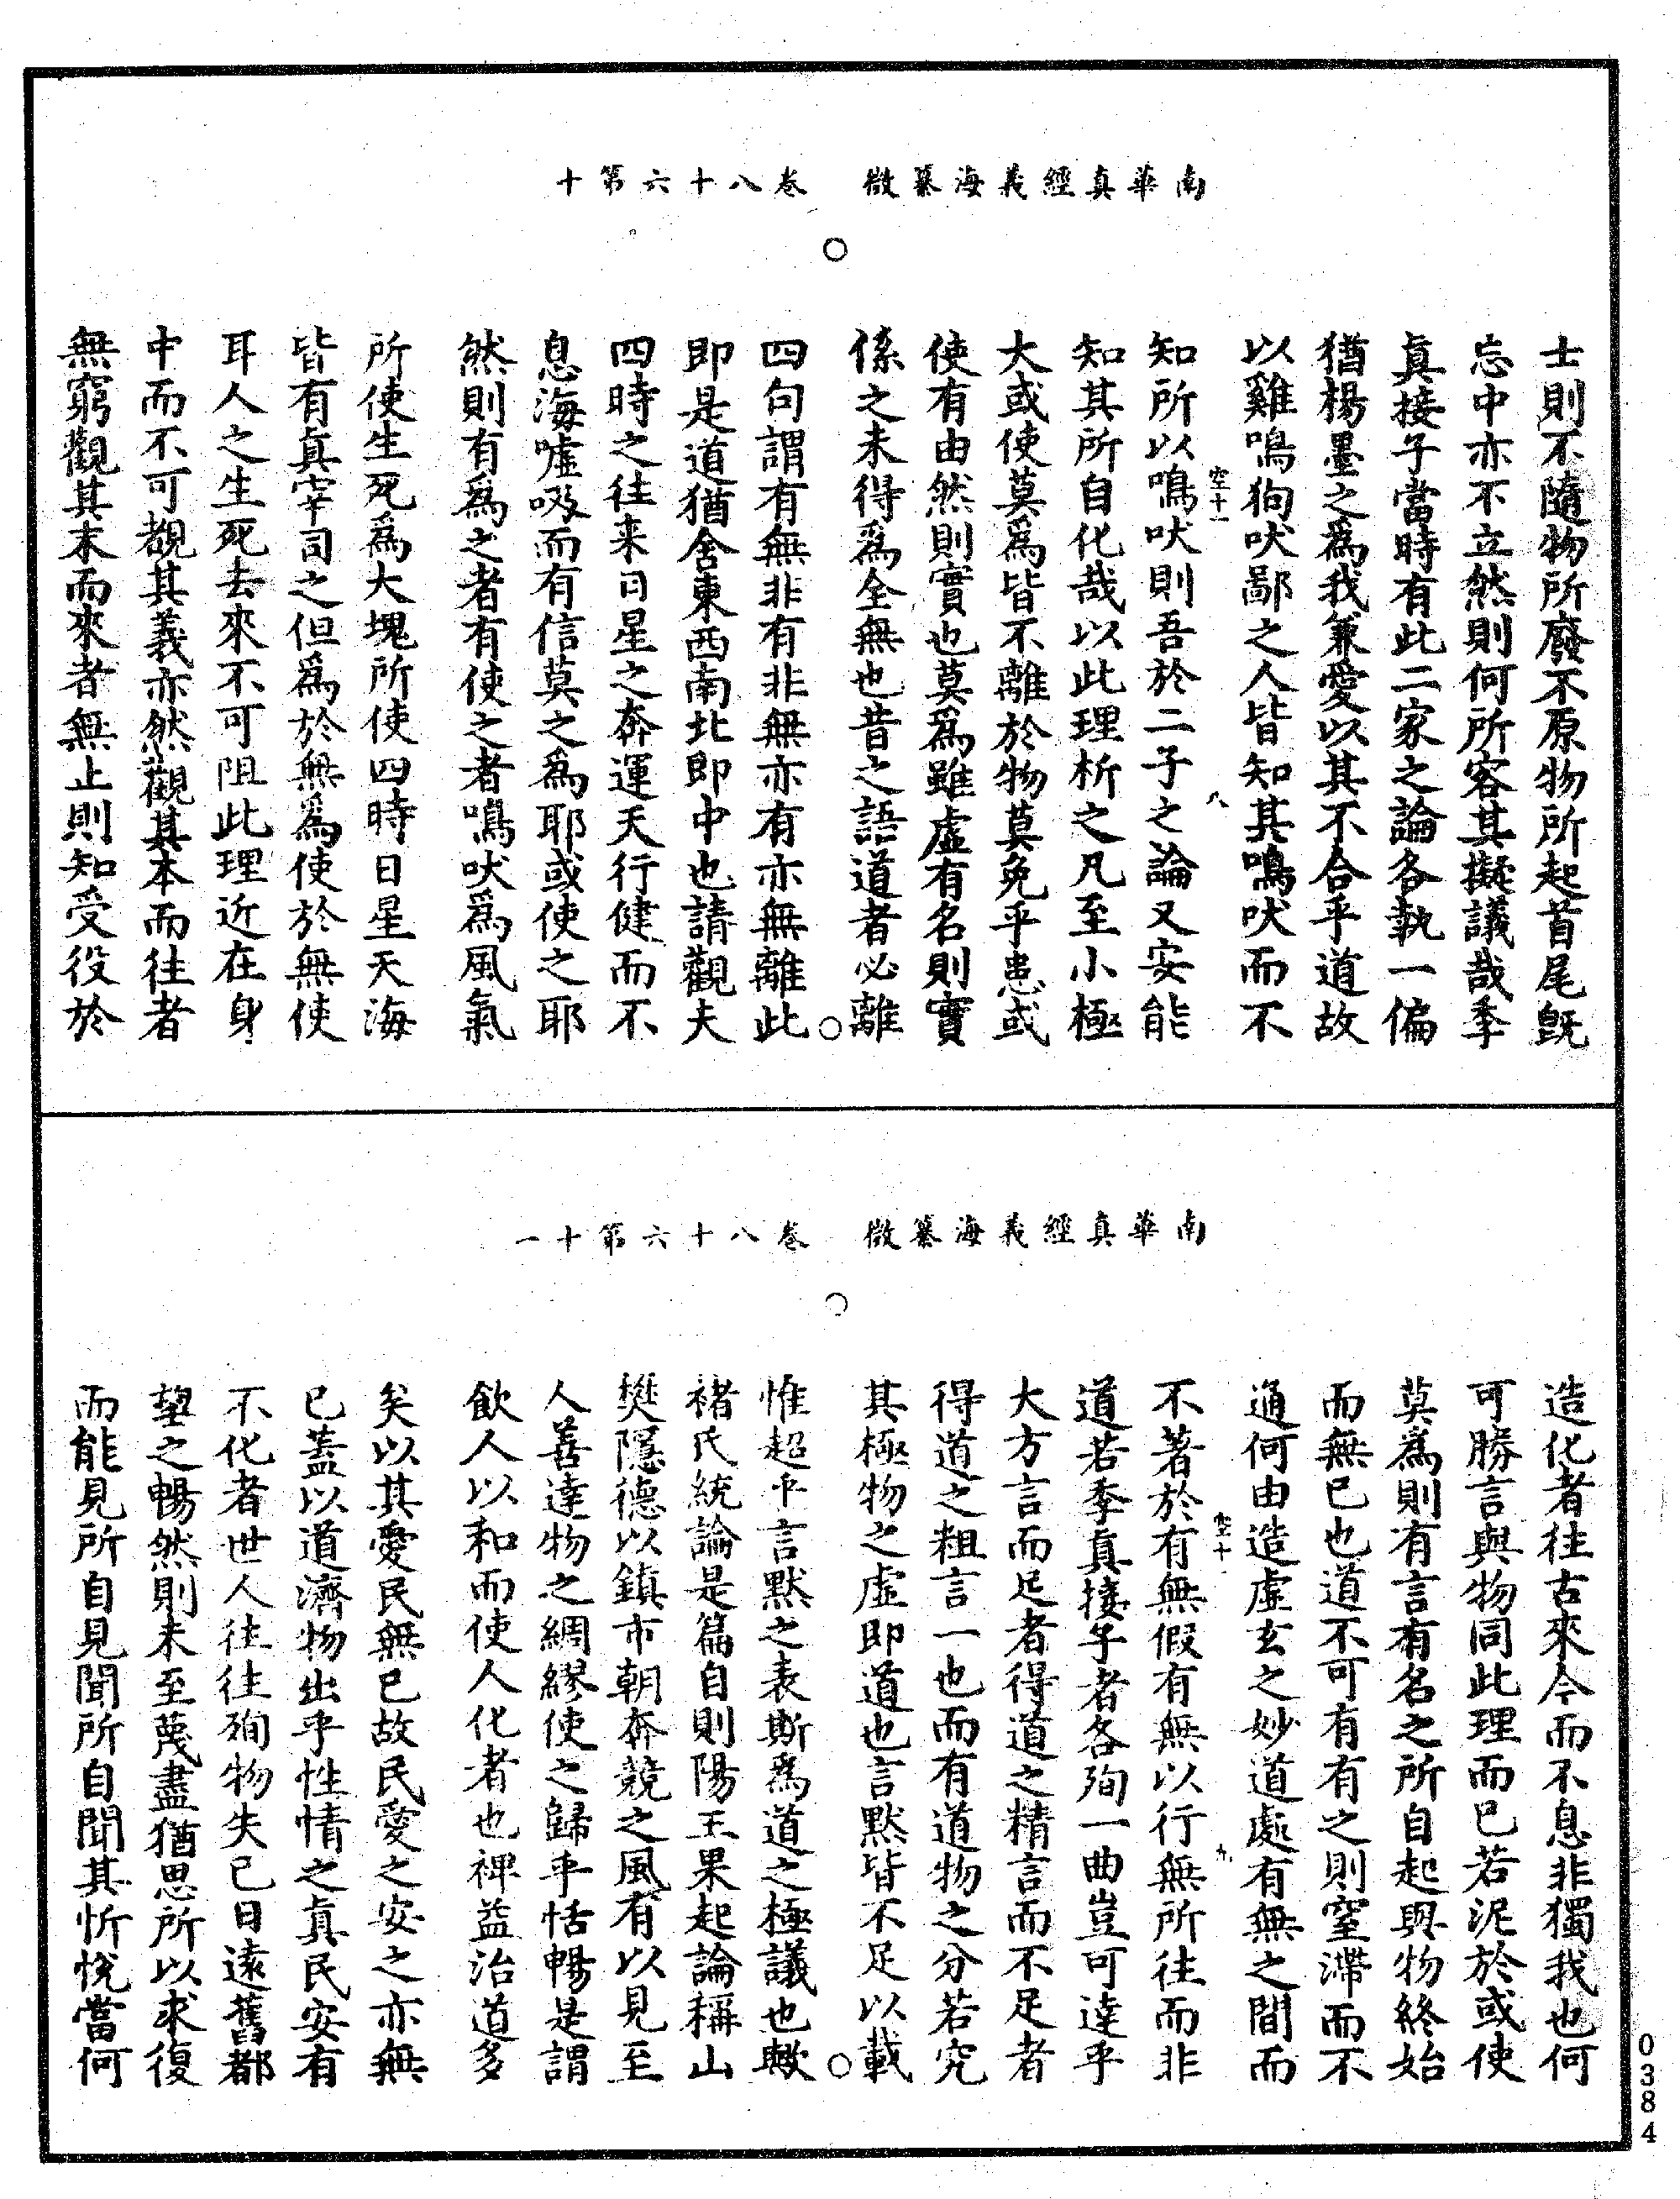 南華真經義海纂微　卷八十六第十
士則不隨物所廢不原物所起首尾既
忘中亦不立然則何所容其擬議哉季
真接子當時有此二家之論各執一偏
猶楊墨之爲我兼愛以其不合乎道故
以雞鳴狗吠鄙之人皆知其鳴吠而不
空十一　八
知所以鳴吠則吾於二子之論又安能
知其所自化哉以此理析之凡至小極
大或使莫爲皆不離於物莫免乎患或
使有由然則實也莫爲雖虛有名則實
係之未得爲全無也昔之語道者必離
四句謂有無非有非無亦有亦無離此
即是道猶舍東西南北即中也請觀夫
四時之往来日星之奔運天行健而不
息海噓吸而有信莫之爲耶或使之耶
然則有爲之者有使之者鳴吠爲風氣
所使生死爲大塊所使四時日星天海
皆有真宰司之但爲於無爲使於無使
耳人之生死去來不可阻此理近在身
中而不可覩其義亦然觀其本而往者
無窮觀其末而來者無止則知受役於
南華真經義海纂微　卷八十六第十一
造化者往古來今而不息非獨我也何
可勝言與物同此理而已若泥於或使
莫爲則有言有名之所自起與物終始
而無已也道不可有有之則窒滯而不
通何由造虛玄之妙道處有無之間而
空十一　九
不著於有無假有無以行無所往而非
道若季真接子者各殉一曲豈可達乎
大方言而足者得道之精言而不足者
得道之粗言一也而有道物之分若究
其極物之虛即道也言默皆不足以載
惟超乎言默之表斯爲道之極議也歟
褚氏統論是篇自則陽王果起論稱山
樊隱德以鎮市朝奔競之風有以見至
人善達物之綢繆使之歸乎恬暢是謂
飲人以和而使人化者也裨益治道多
矣以其愛民無已故民愛之安之亦無
已蓋以道濟物出乎性情之真民安有
不化者世人往往殉物失己日遠舊都
望之暢然則未至蔑盡猶思所以求復
而能見所自見聞所自聞其忻悅當何
0384